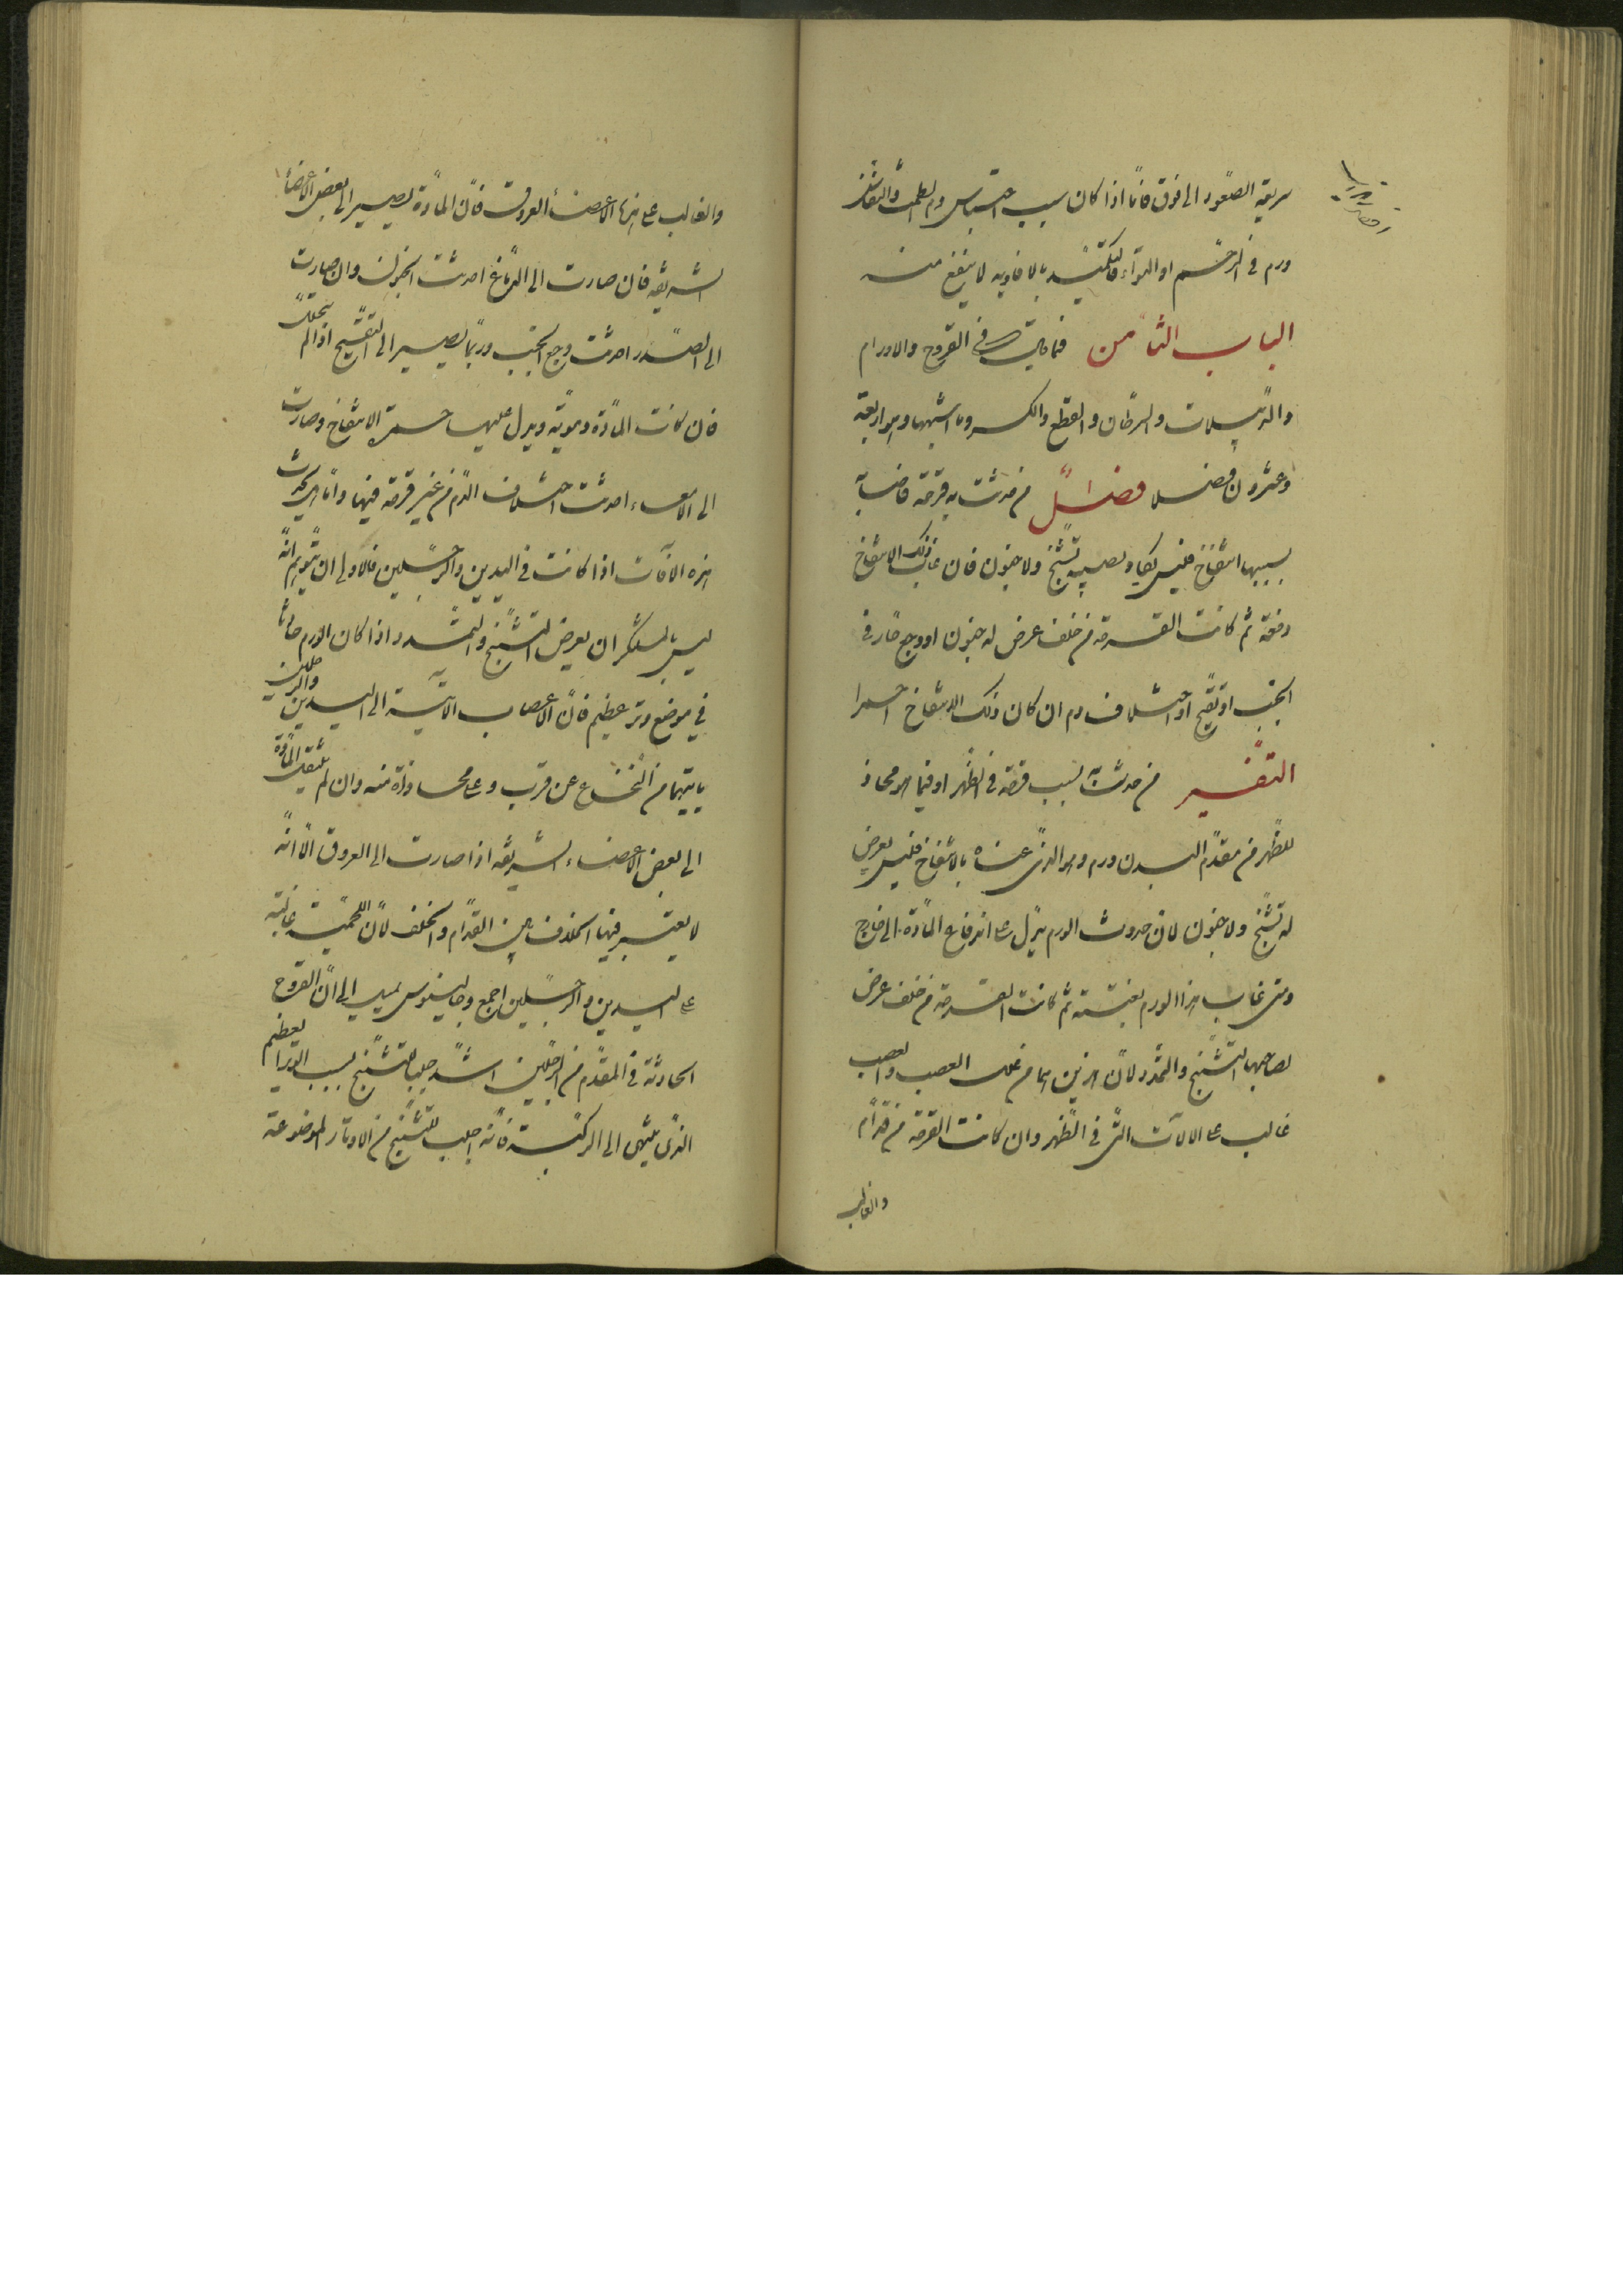 سريعة الصعود الى فوق فامّا اذا كان سبب احتباس دم الطمث والنفاس
ورم في الرحم او التواء فالتكميد بالافاويه لا ينفع منه
الباب الثامن فيما قال في القروح والاورام
والدبيلات والسرطان والقطع والكسر وما اشبهها وهو اربعة
وعشرون فصلا فصل من حدثت به قرحة فاصابه
بسببها انتفاخ فليس يكاد يصيبه تشنج ولا جنون فان غاب ذلك الانتفاخ
دفعة ثم كانت القرحة من خلف عرض له جنون او وجع حاد في
الجنب او تقيح او اختلاف دم ان كان ذلك الانتفاخ احمرا
التفسير من حدث به بسبب قرحة في الظهر او فيما هو محاذ
للظهر من مقدم البدن ورم وهو الذى عناه بالانتفاخ فليس يعرض
له تشنج ولا جنون لان حدوث الورم يدل على اندفاع المادة الى خارج
ومتى غاب هذا الورم بغتة ثم كانت القرحة من خلف عرض
لصاحبها التشنج والتمدد لان هذين هما من علل العصب والعصب
غالب على الآلات التى في الظهر وان كانت القرحة من قدام
والغالب
والغالب على هذه الاعضاء العروق فان المادة تصير الى بعض الاعضاء
الشريفة فان صارت الى الدماغ احدثت الجنون وان صارت
الى الصدر احدثت وجع الجنب وربما يصير الى التقيح اذا لم يتحلل
فان كانت المادة دموية ويدل عليها حمرة الانتفاخ وصارت
الى الامعاء احدثت اختلاف الدم من غير قرحة فيها وامّا
هذه الآفات اذا كانت في اليدين والرجلين فالاولى ان يتوهم انه
ليس بالمنكر ان يعرض التشنج والتمدد اذا كان الورم حادثا
في موضع وتر عظيم فان الاعصاب الآتية الى اليدين والرجلين
ياتيهما من النخاع عن قرب وعلى محاذاة منه وان لم ينتقل المادة
الى بعض الاعضاء الشريفة اذا صارت الى العروق الّا انّه
لا يعتبر فيها الخلاف بين القدام والخلف لان اللحمية غالبة
على اليدين والرجلين اجمع وجالينوس يميل الى ان القروح
الحادثة في المقدم من الرجلين اشد جلبا للتشنج بسبب الوتر العظيم
الذى ينتهى الى الركبة فانه اجلب للتشنج من الاوتار الموضوعة